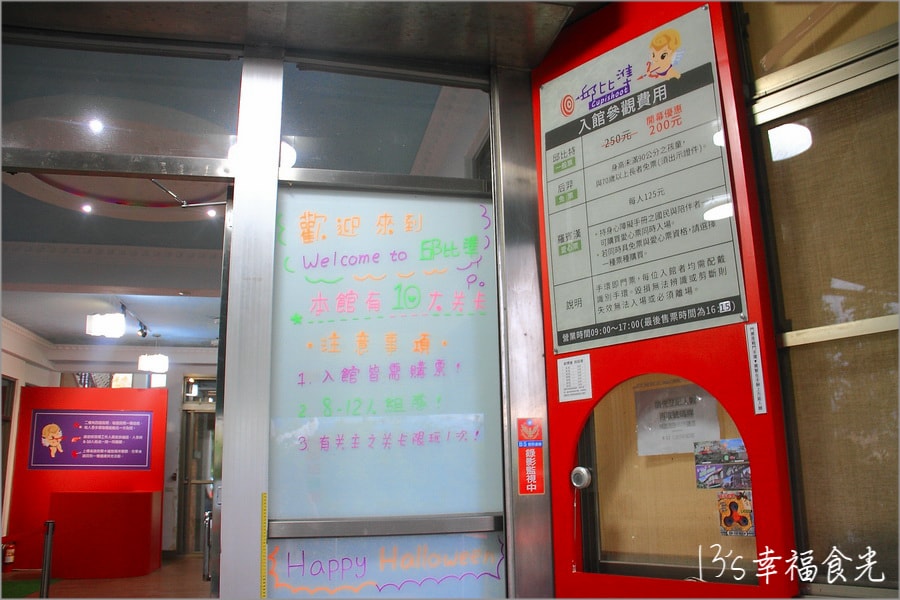 歡迎來到
Welcome to 邱比準
本館有10大关卡
注意事項
1. 入館皆需購票!
2. 8-12人組隊!
3 有关主之关卡限玩1次!
Happy Halloween
錄影監視中
邱比準
Cupishoot
入館參觀費用
邱比特
250元
開幕優惠
200元
后羿
身高未滿90公分之孩童,
與70歲以上長者免票(須出示證件)。
羅賓漢
每人125元
・持身心障礙手冊之國民與陪伴者一名
可購買愛心票同時入場。
・若同時具免票與愛心票資格,請選擇
一種票種購買。
說明
手環即門票,每位入館者均需配戴
識別手環。毀損無法辨識或剪斷則
失效無法入場或必須離場。
營業時間09:00~17:00(最後售票時間為16:15)
13's幸福食光